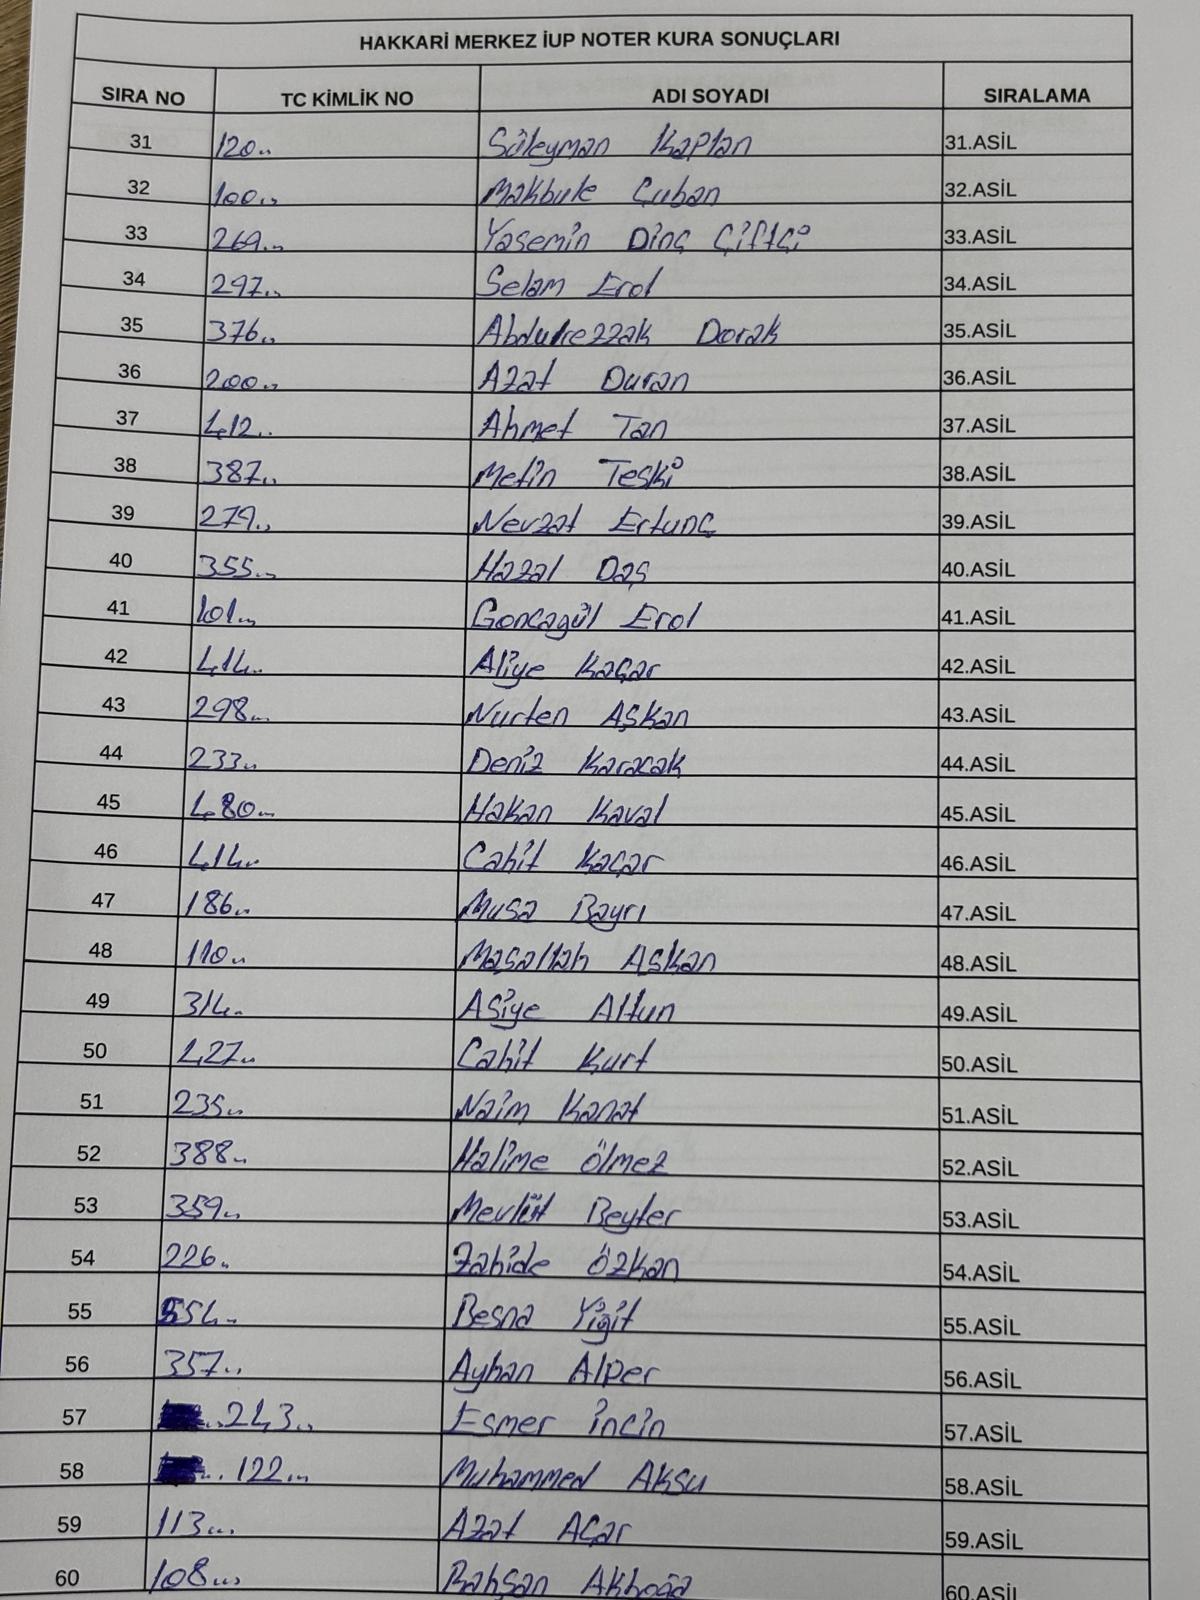 HAKKARİ MERKEZ İUP NOTER KURA SONUÇLARI
SIRA NO TC KİMLİK NO ADI SOYADI SIRALAMA
31 120.. Süleyman Kaplan 31.ASİL
32 100... Makbule Çuban 32.ASİL
33 269... Yasemin Dinç Çiftçi 33.ASİL
34 297... Selam Erol 34.ASİL
35 376... Abdulrezzak Dorak 35.ASİL
36 200... Azat Duran 36.ASİL
37 412.. Ahmet Tan 37.ASİL
38 387... Metin Teski 38.ASİL
39 279... Nevzat Ertunç 39.ASİL
40 355... Hazal Daş 40.ASİL
41 101... Goncagül Erol 41.ASİL
42 414... Aliye Kaçar 42.ASİL
43 298... Nurten Aşkan 43.ASİL
44 233... Deniz Karacak 44.ASİL
45 480... Hakan Kaval 45.ASİL
46 414... Cahit Kaçar 46.ASİL
47 186... Musa Bayrı 47.ASİL
48 110... Maşallah Aşkan 48.ASİL
49 314... Asiye Altun 49.ASİL
50 427... Cahit Kurt 50.ASİL
51 235... Naim Kanat 51.ASİL
52 388... Halime Ölmez 52.ASİL
53 359... Mevlüt Beyter 53.ASİL
54 226.. Zahide Özkan 54.ASİL
55 554... Besna Yiğit 55.ASİL
56 357... Ayhan Alper 56.ASİL
57 243... Esmer İncin 57.ASİL
58 122... Muhammed Aksu 58.ASİL
59 113... Azat Acar 59.ASİL
60 108... Rahşan Akboğa 60.ASİL